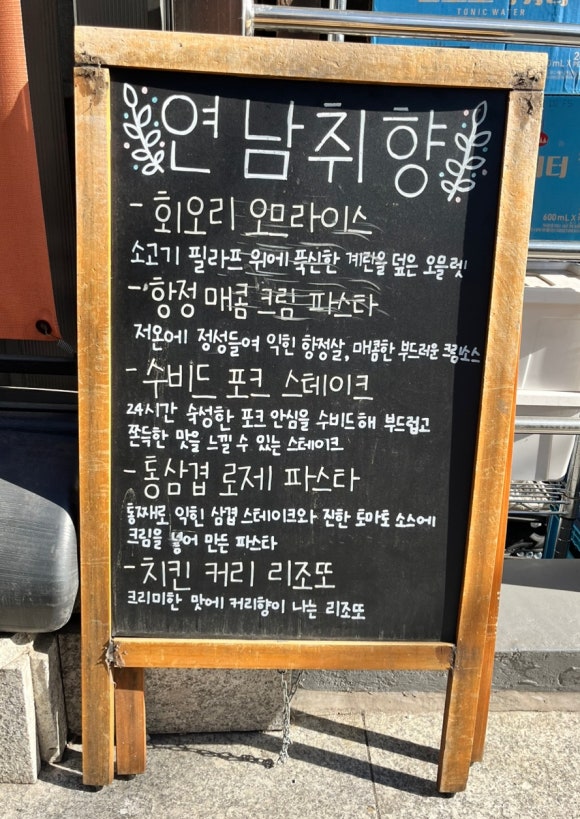 TONIC WATER
연남취향
- 회오리 오므라이스
소고기 필라프 위에 푹신한 계란을 덮은 오믈렛
- 항정 매콤 크림 파스타
저온에 정성들여 익힌 항정살, 매콤한 부드러운 크림소스
- 수비드 포크 스테이크
24시간 숙성한 포크 안심을 수비드해 부드럽고
쫀득한 맛을 느낄 수 있는 스테이크
- 통삼겹 로제 파스타
통째로 익힌 삼겹 스테이크와 진한 토마토 소스에
크림을 넣어 만든 파스타
- 치킨 커리 리조또
크리미한 맛에 커리향이 나는 리조또